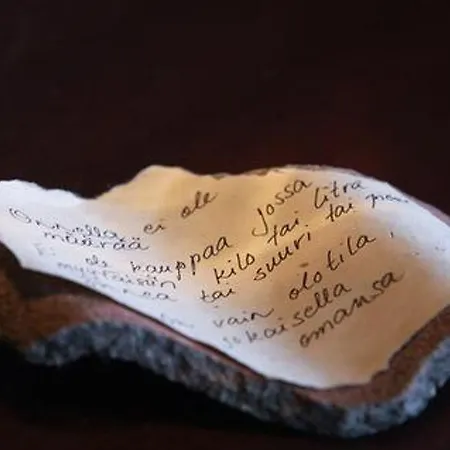 Onnella ei ole
määrää
Ei ole kauppaa jossa
myytäisiin kilo tai litra
tai suuri tai
on vain olotila,
jokaisella
omansa